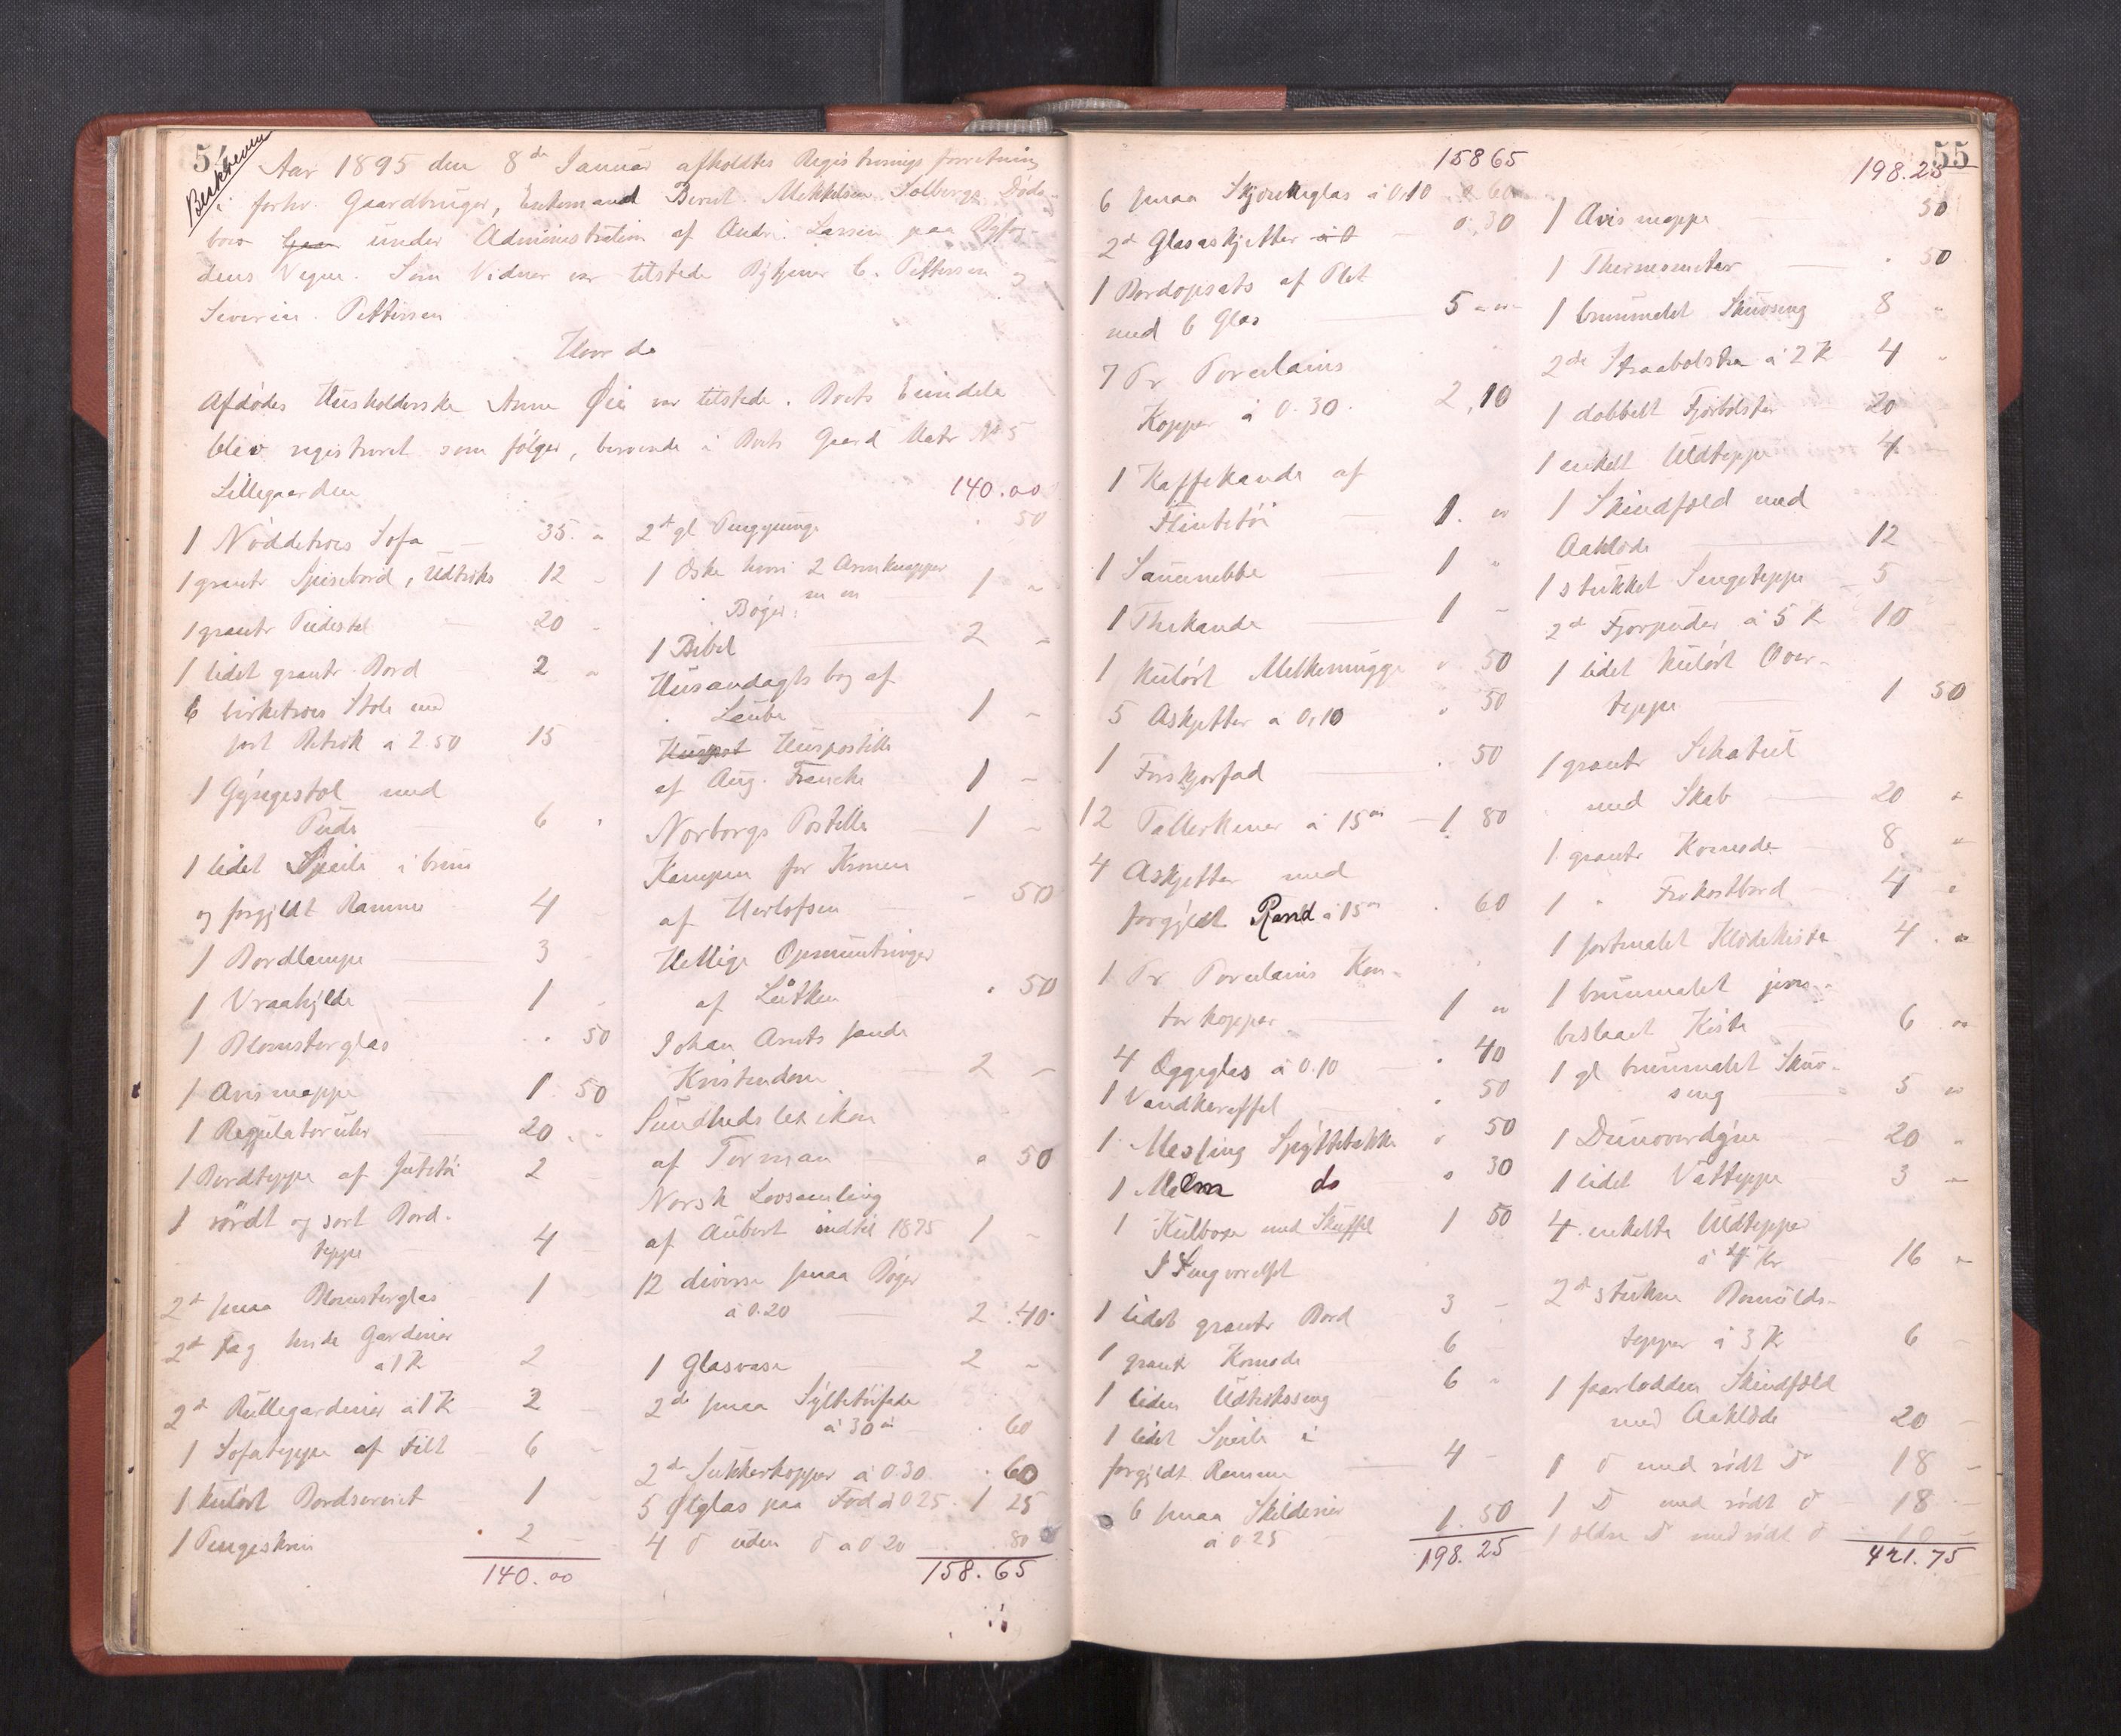 54
Aar 1895 den 8de Januar afholdtes Registreringsforretning
i forhv. Gaardbruger, Enkemand Bernt Mikkelsen Solbergs Døds-
bo under Administration af Andr. Larsen paa Byfog-
dens Vegne. Som Vidner var tilstede E. Pettersen og
Severin Pettersen
Hvorda
Afdødes Husholderske Anne Øie var tilstede. Boets Eiendele
blev registreret som følger, beroende i Boets Gaard Matr No 5
Lillegaarden
1 Nøddetræs Sofa 35. "
1 grantr Spisebord, Udtræks 12 "
1 grantr Pidestal 20 "
1 lidet grantr. Bord 2 "
6 birketræs Stole med
sort Betræk a 2.50 15
1 Gyngestol med
Pude 6 "
1 lidet Speile i brun
og forgyldt Ramme 4
1 Bordlampe 3
1 Vraahylde 1
1 Blomsterglas " 50
1 Avismappe 1.50
1 Regulatoruhr 20 "
1 Bordteppe af Jutetøi 2
1 rødt og sort Bord-
teppe 4
2de smaa Blomsterglas 1
2de Fag hvide Gardiner
a 1 K 2
2de Rullegardiner a 1 K 2
1 Sofateppe af Filt 6
1 kulørt Bordserviet 1
1 Pengeskrin 2
140.00
140.00
2de gl Pengepunge " 50
1 Æske hvori 2 Armknapper
m m 1 "
Bøger.
1 Bibel 2 "
Husandagtsbog af
Leube 1 "
Huspostille
af Aug. Francke 1 "
Norborgs Postille 1 "
Kampen for Kronen
af Herlofsen " 50
Hellige Opmuntringer
af Lütken " 50
Johan Arnts sande
Kristendom 2 "
Sundhedslexikon
af Torman " 50
Norsk Lovsamling
af Aubert indtil 1875 1 "
12 diverse smaa Bøger
à 0.20 2.40
1 Glasvase 2 "
2de smaa Syltetøifade
à 30 " 60
2de Sukkerkopper à 0.30 " 60
5 Ølglas paa Fod à 0.25 1 25
4 do uden do a 0 20 80
158.65
55
158 65
6 smaa Skjænkeglas à 0,10 0 60
2de Glasaskjetter 0.30
1 Bordopsats af Plet
med 6 Glas 5 "
7 Pr Porcelains
Kopper à 0.30. 2,10
1 Kaffekande af
Flintetøi 1. "
1 Saucenebbe 1 "
1 Thekande 1 "
1 kulørt Melkemugge " 50
5 Askjetter a 0,10 " 50
1 Forskjærfad " 50
12 Tallerkener à 15 1. 80
4 Askjetter med
forgyldt Rand à 15 " 60
1 Pr Porcelains Kon-
torkopper 1 "
4 Eggeglas à 0.10 " 40
1 Vandkaraffel " 50
1 Messing Spyttebakke " 50
1 Malm do " 30
1 Kulboxe med Skuffel 1 50
I Sengværelset
1 lidet grantr Bord 3 "
1 grantr Komode 6
1 liden Udtrækseng 6 "
1 lidet Speile i
forgyldt Ramme 4
6 smaa Skilderier
à 0 25 1.50
198.25
198.25
1 Avismappe 50
1 Thermometer " 50
1 brunmalet Skuvseng 8 "
2de Straabolstre a 2 K 4 "
1 dobbelt Fjærbolster 20
1 enkelt Uldteppe 4
1 Skindfeld med
Aaklæde 12
1 stukket Sengeteppe 5
2de Fjærputer à 5 K 10
1 lidet kulørt Over-
teppe 1 50
1 grantr Schatul
med Skab 20 "
1 grantr Komode 8 "
1 " Frokostbord 4 "
1 sortmalet Klædekiste 4 "
1 brunmalet jern-
beslaaet Kiste 6 "
1 gl brunmalet Skuv-
seng 5 "
1 Dunoverdyne 20 "
1 lidet Vatteppe 3 "
4 enkelte Uldtepper
à 4 Kr 16 "
2de stukne Bomulds-
tepper à 3 K 6
1 faarlodden Skindfeld
med Aaklæde 20
1 do med rødt do 18
1 do med rødt do 18
1 ældre do med rødt do 10
421.75